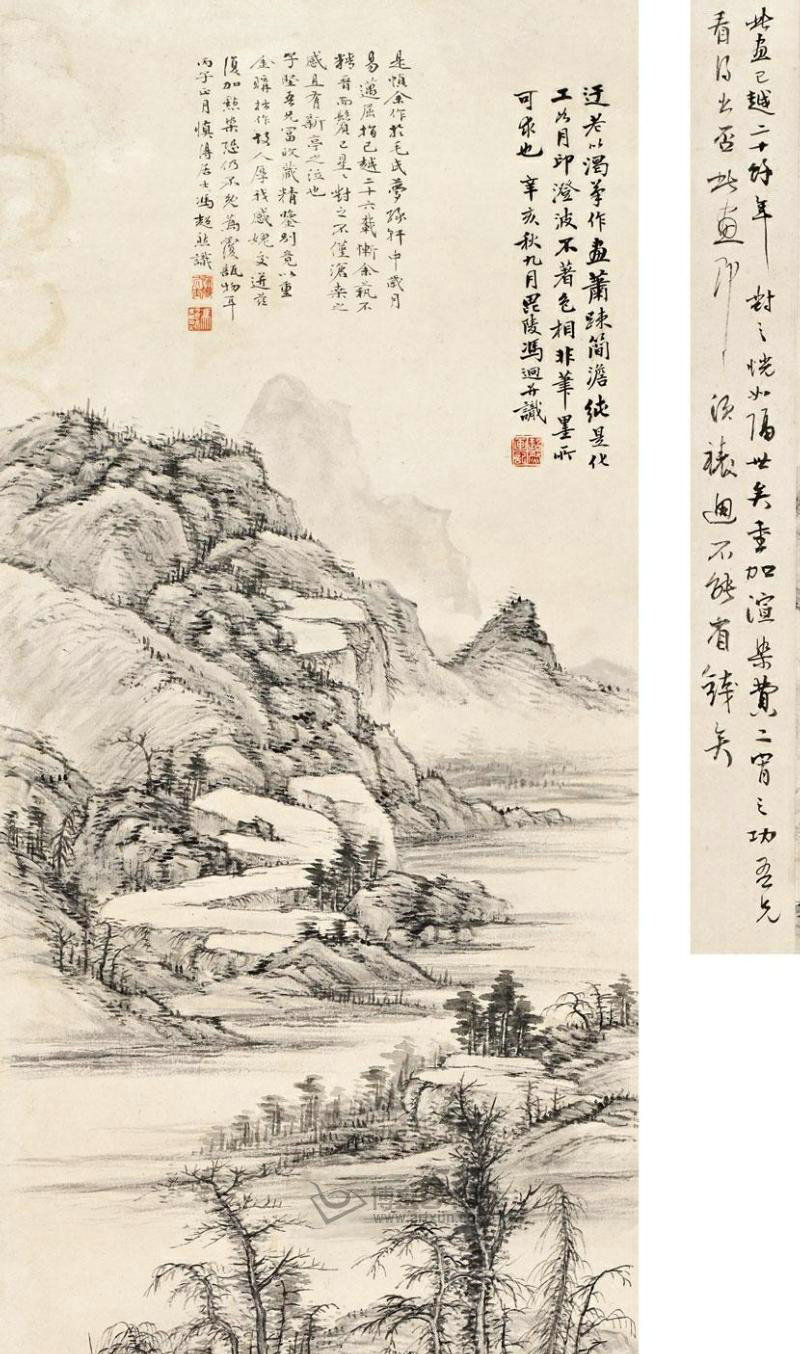 此画已越二十余年 對之恍如隔世矣 重加渲染費二宵之功 吾兄
看得出否 此画 須裱過不能省錢矣
迂老以渴筆作画 蕭踈簡澹 純是化
工 如月印澄波 不著色相 非筆墨所
可求也 辛亥秋九月 毘陵馮迥并識
是幀余作於毛氏夢 軒中 歲月
易邁 屈指已越二十六載 慚余藝不
精晉 而鬢已星星 對之不僅滄桑之
感 且有新亭之泣也
子 吾兄富收藏 精鑒別 竟以重
金購拙作 故人厚我 感媿交迸 茲
復加點染 恐仍不免為覆瓿物耳
丙子正月 慎得居士馮超然識
博宝
www.artxun.com